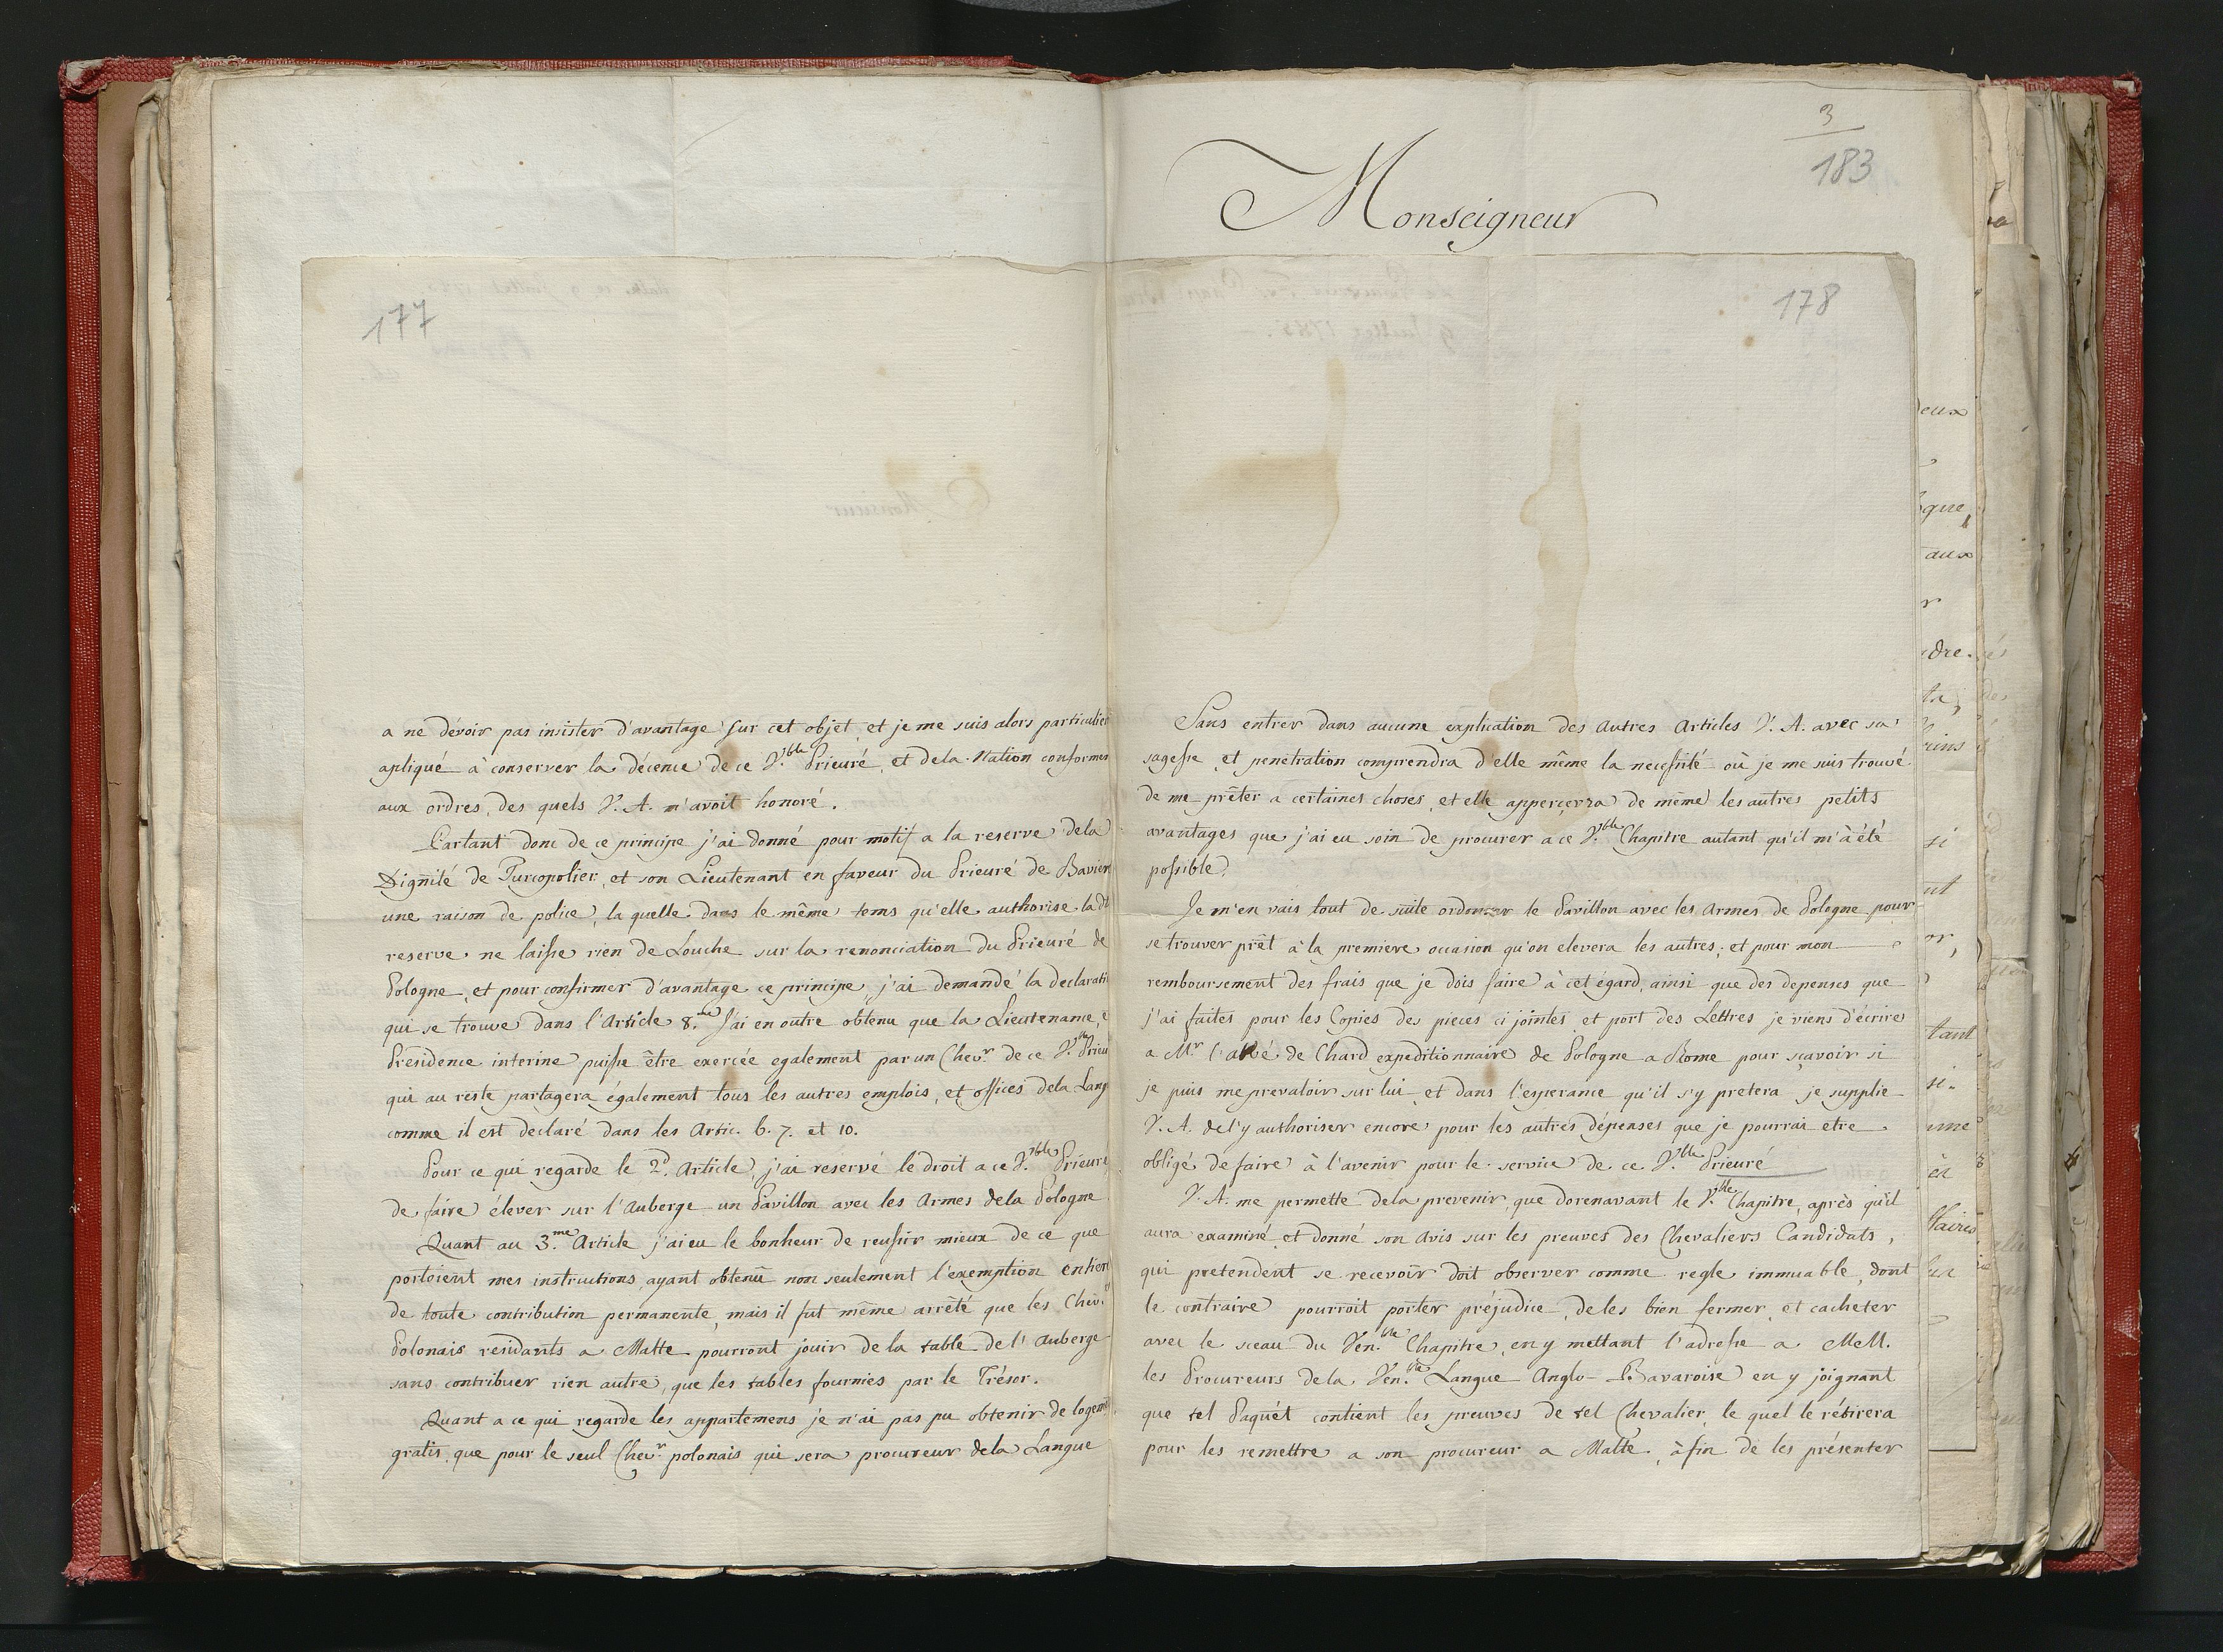 177
a ne dévoir pas insister d'avantage sur cet objet, et je me suis alors particulier
apliqué à conserver la décence de ce V.ble Prieuré, et dela Nation conformes
aux ordres, des quels V. A. m'avoit honoré.
Partant donc de ce principe j'ai donné pour motif a la reserve dela
Dignité de Turcopolier, et son Lieutenant en faveur du Prieuré de Bavier
une raison de police, la quelle dans le même tems qu'elle authorise la dt
reserve ne laisse rien de Louche sur la renonciation du Prieuré de
Pologne, et pour confirmer d'avantage ce principe, j'ai demandé la declarati
qui se trouve dans l'Article 8.me J'ai en outre obtenu que la Lieutenance, e
Présidence interine puisse être exercée egalement par un Chev.r de ce V.ble Prieu
qui au reste partagera également tous les autres emplois, et offices dela Lang
comme il est declaré dans les Artic. 6. 7. et 10.
Pour ce qui regarde le 2.d Article, j'ai reservé le droit a ce V.ble Prieuré
de faire élever sur l'Auberge un Pavillon avec les Armes dela Pologne
Quant au 3.me Article j'ai eu le bonheur de reussir mieux de ce que
portoient mes instructions, ayant obtenû non seulement l'exemption entier
de toute contribution permanente, mais il fut même arrêté que les Chev.
Polonais residants a Malte pourront jouir de la table de l'Auberge
sans contribuer rien autre, que les tables fournies par le Trésor.
Quant a ce qui regarde les appartemens je n'ai pas pu obtenir de logem
gratis, que pour le seul Chev.r polonais qui sera procureur dela Langue
3
183
Monseigneur
178
Sans entrer dans aucune explication des Autres Articles V. A. avec sa
sagesse, et penetration comprendra d'elle même la necessité où je me suis trouvé
de me prêter a certaines choses, et elle apperçevra de même les autres petits
avantages que j'ai eu soin de procurer a ce V.ble Chapitre autant qu'il m'à été
possible.
Je m'en vais tout de suite ordonner le Pavillon avec les Armes de Pologne pour
se trouver prêt à la premiere occasion qu'on elevera les autres; et pour mon
remboursement des frais que je dois faire à cet égard, ainsi que des depenses que
j'ai faites pour les Copies des pieces ci jointes, et port des Lettres je viens d'écrire
a Mr l'abbé de Chard expeditionnaire de Pologne a Rome pour sçavoir si
je puis me prevaloir sur lui, et dans l'esperance qu'il s'y pretera je supplie
V. A. de l'y authoriser encore pour les autres dépenses que je pourrai etre
obligé de faire à l'avenir pour le service de ce V.ble Prieuré
V. A. me permette dela prevenir, que dorenavant le V.ble Chapitre, après qu'il
aura examiné, et donné son avis sur les preuves des Chevaliers Candidats,
qui pretendent se recevoir doit observer comme regle immuable, dont
le contraire pourroit porter préjudice, de les bien fermer, et cacheter
avec le sceau du Ven.ble Chapitre, en y mettant l'adresse a MeM.
les Procureurs dela Ven.ble Langue Anglo-Bavaroise en y joignant
que tel Paquét contient les preuves de tel Chevalier, le quel le rétirera
pour les remettre a son procureur a Malte, àfin de les présenter